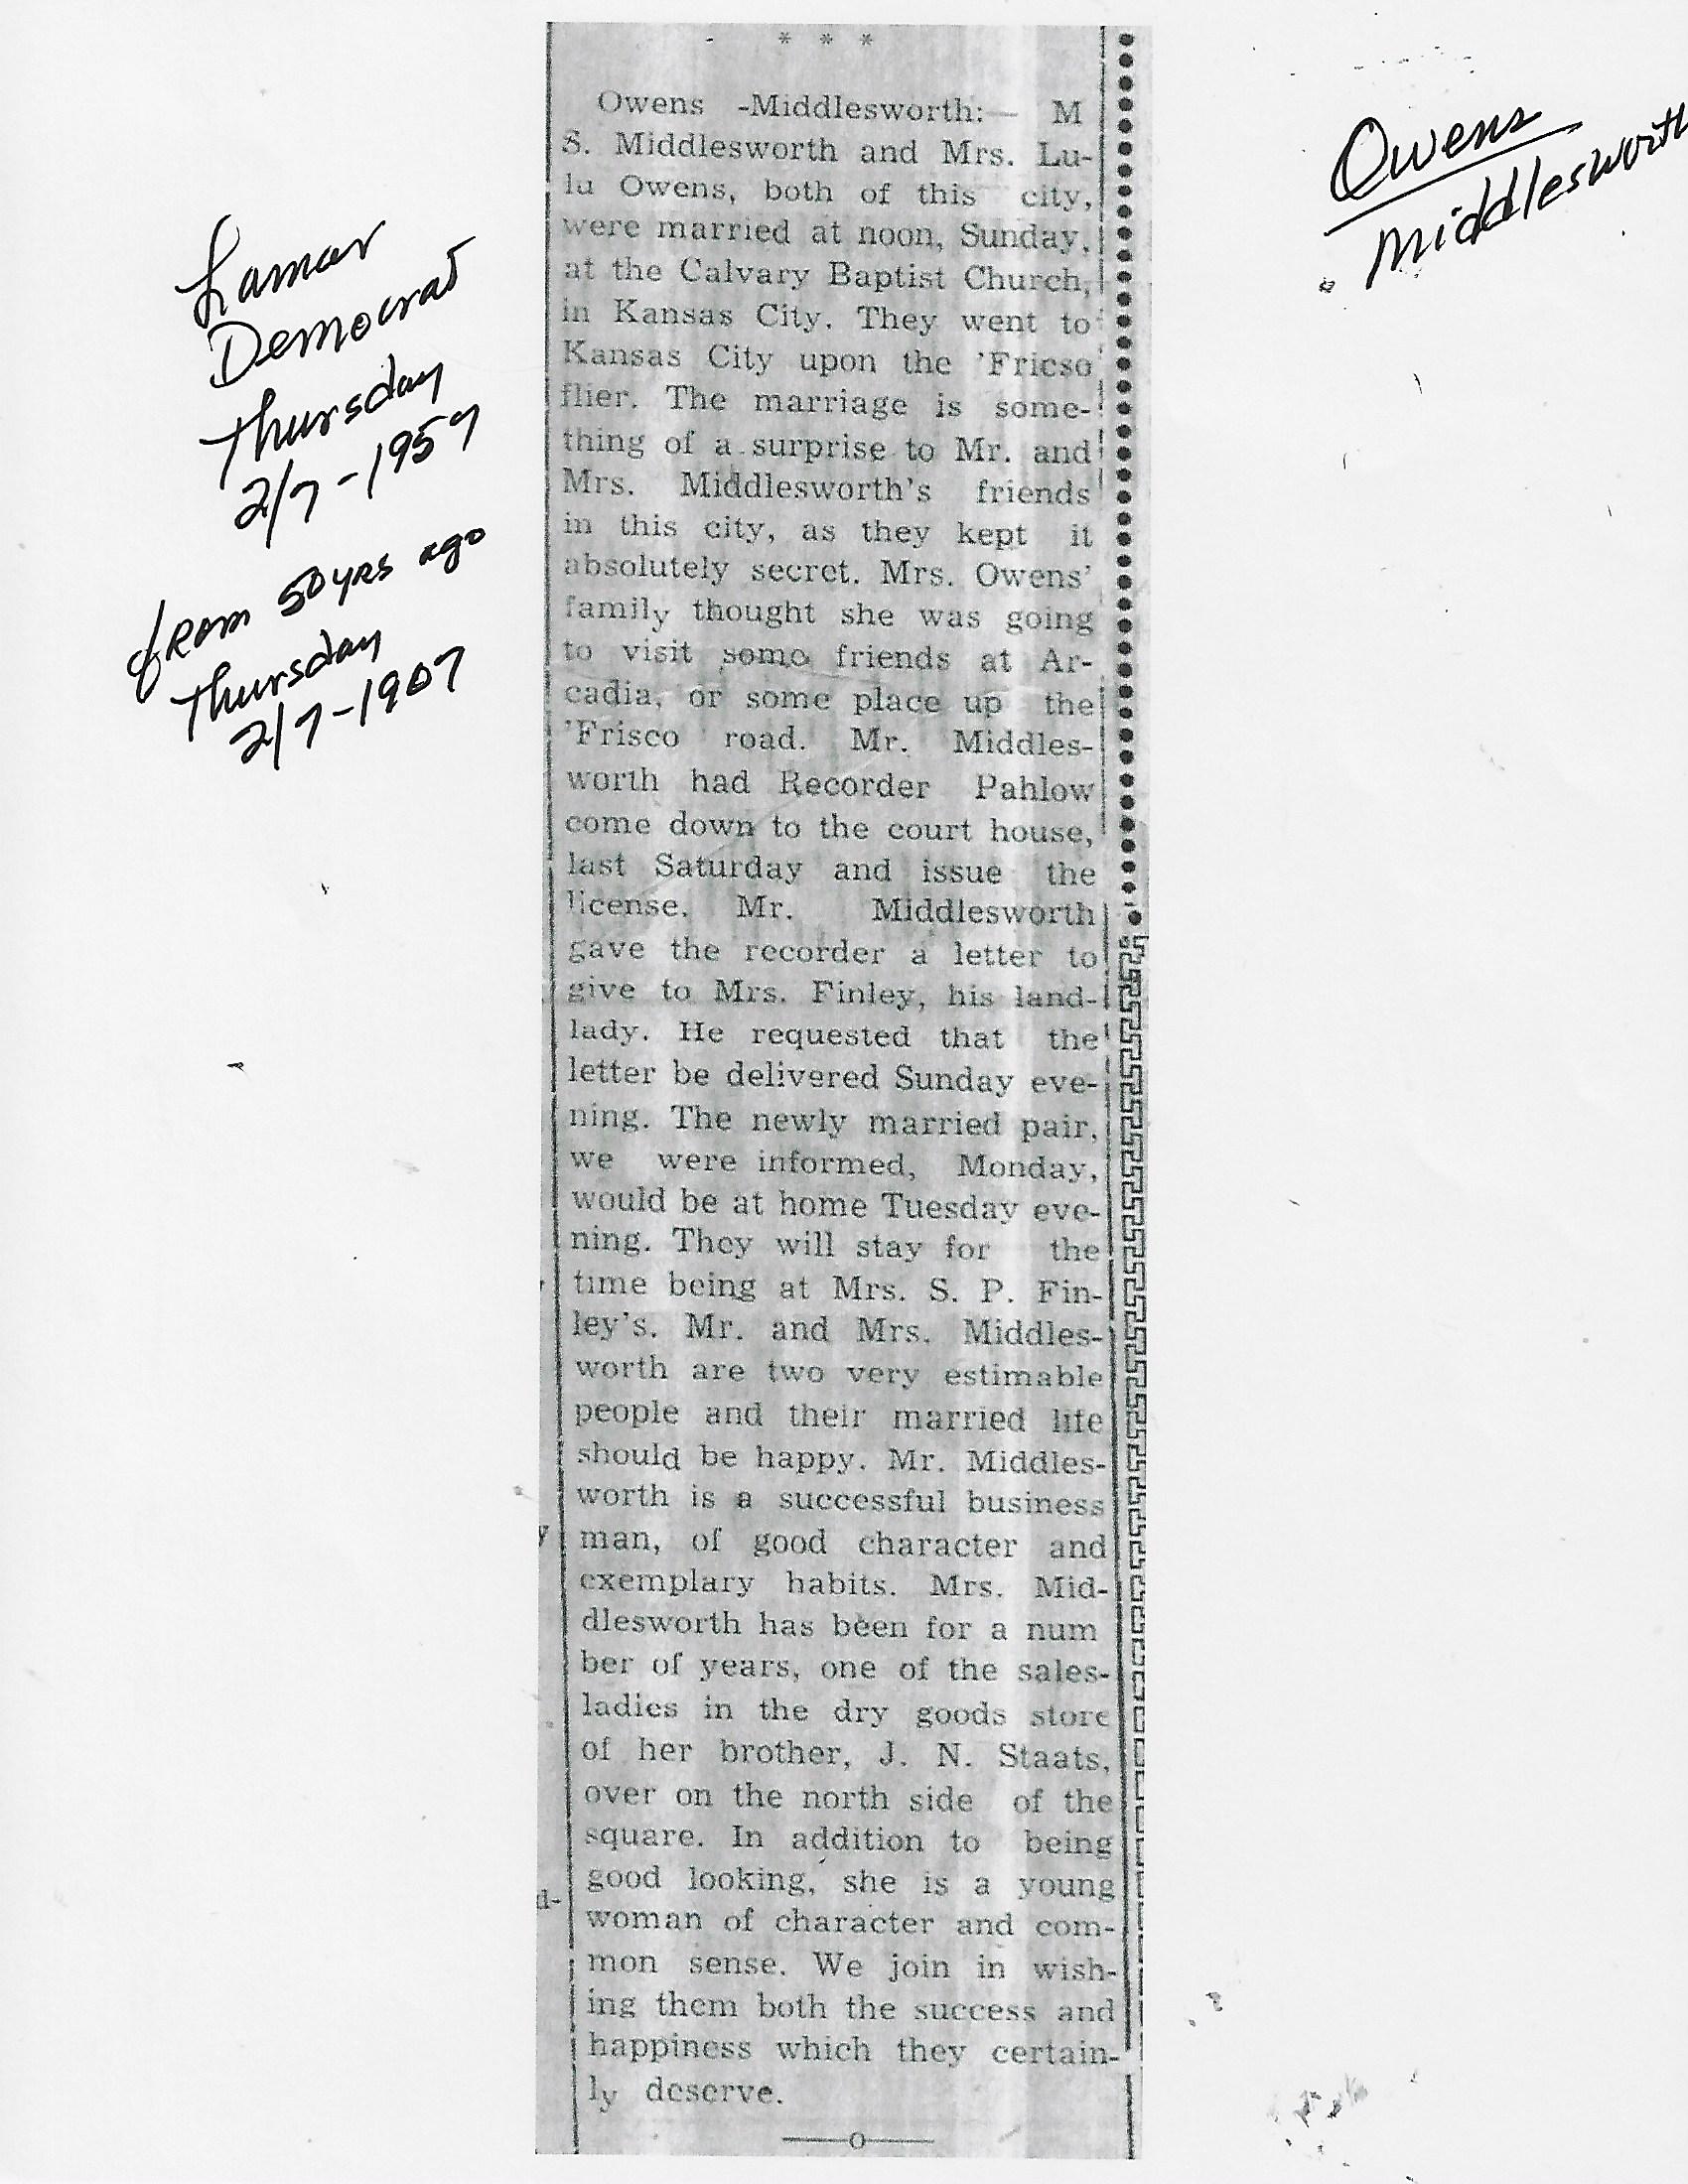 Lamar
Democrat
Thursday
2/7-1957
from 50 yrs ago
Thursday
2/7-1907
* * *
Owens -Middlesworth:— M
S. Middlesworth and Mrs. Lu-
lu Owens, both of this city,
were married at noon, Sunday,
at the Calvary Baptist Church,
in Kansas City. They went to
Kansas City upon the 'Fricso
flier. The marriage is some-
thing of a surprise to Mr. and
Mrs. Middlesworth's friends
in this city, as they kept it
absolutely secret. Mrs. Owens'
family thought she was going
to visit some friends at Ar-
cadia, or some place up the
'Frisco road. Mr. Middles-
worth had Recorder Pahlow
come down to the court house,
last Saturday and issue the
license. Mr. Middlesworth
gave the recorder a letter to
give to Mrs. Finley, his land-
lady. He requested that the
letter be delivered Sunday eve-
ning. The newly married pair,
we were informed, Monday,
would be at home Tuesday eve-
ning. They will stay for the
time being at Mrs. S. P. Fin-
ley's. Mr. and Mrs. Middles-
worth are two very estimable
people and their married life
should be happy. Mr. Middles-
worth is a successful business
man, of good character and
exemplary habits. Mrs. Mid-
dlesworth has been for a num
ber of years, one of the sales-
ladies in the dry goods store
of her brother, J. N. Staats,
over on the north side of the
square. In addition to being
good looking, she is a young
woman of character and com-
mon sense. We join in wish-
ing them both the success and
happiness which they certain-
ly deserve.
——o——
Owens
Middlesworth